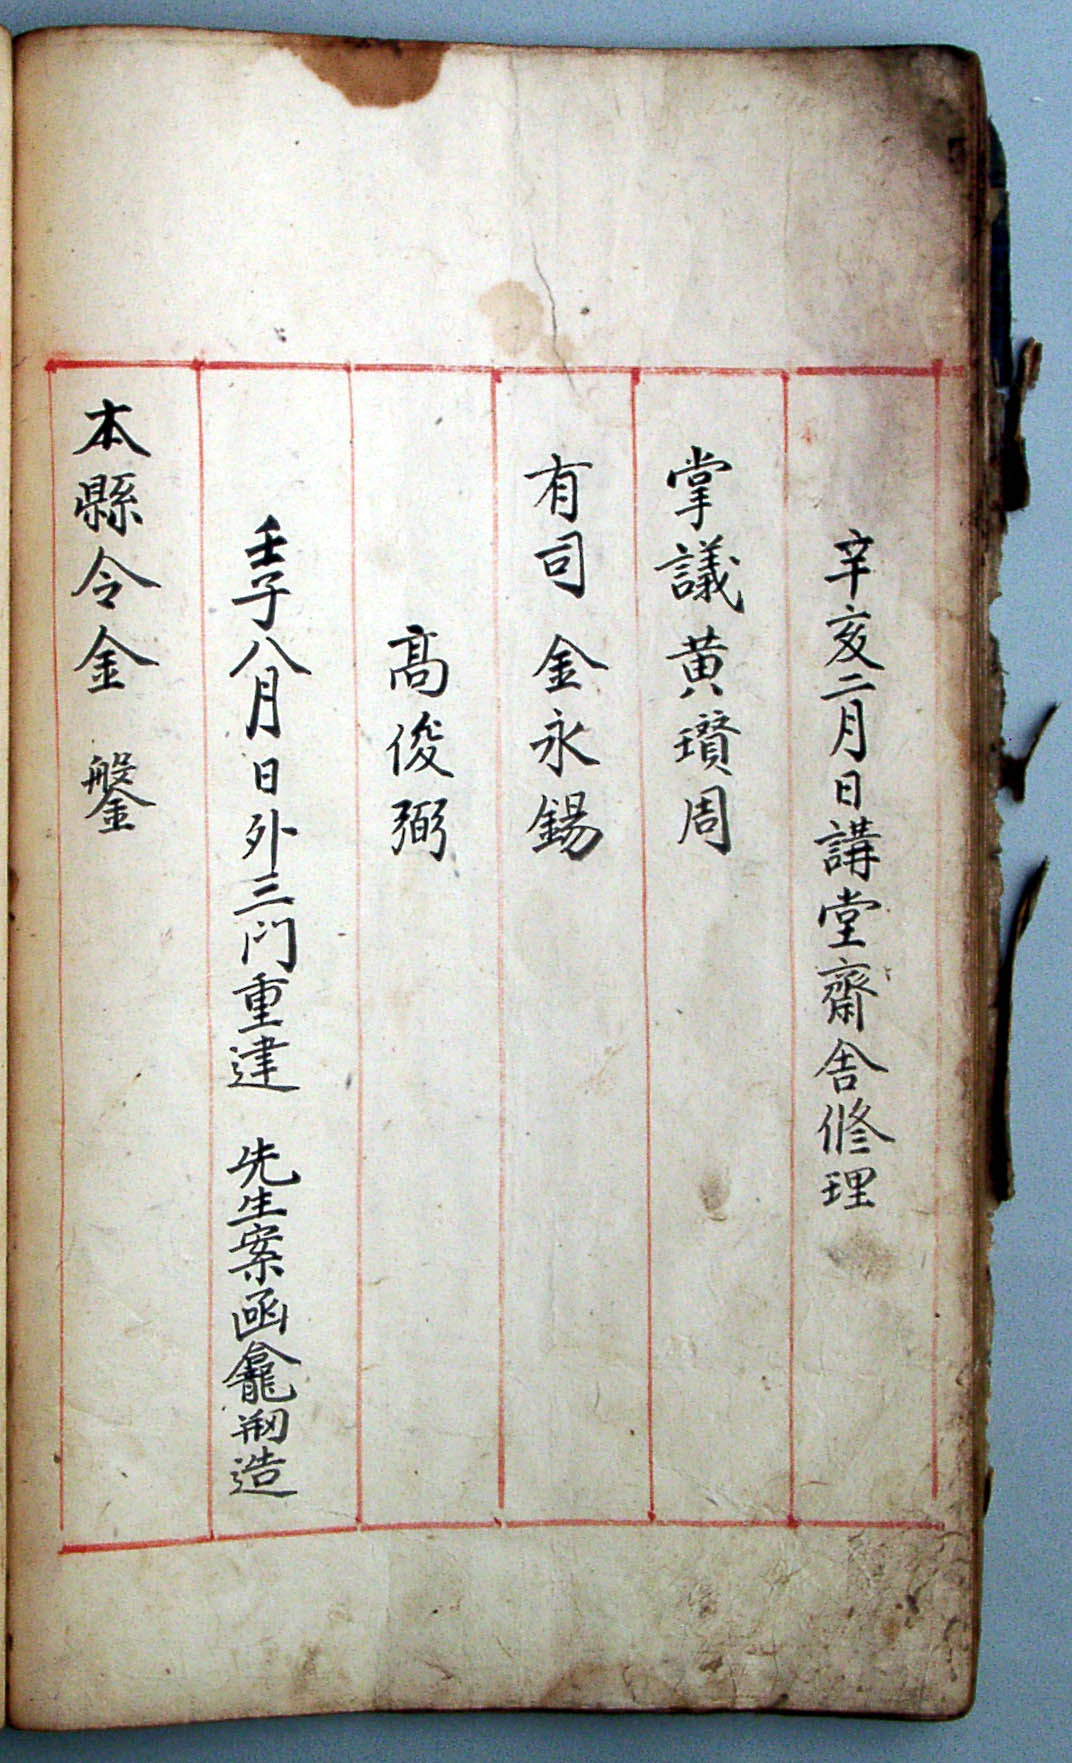 辛亥二月日講堂齋舍修理
掌議黃瓚周
有司金永錫
高俊弼
壬子八月日外三門重建 先生案函龕刱造
本縣令金 鎜